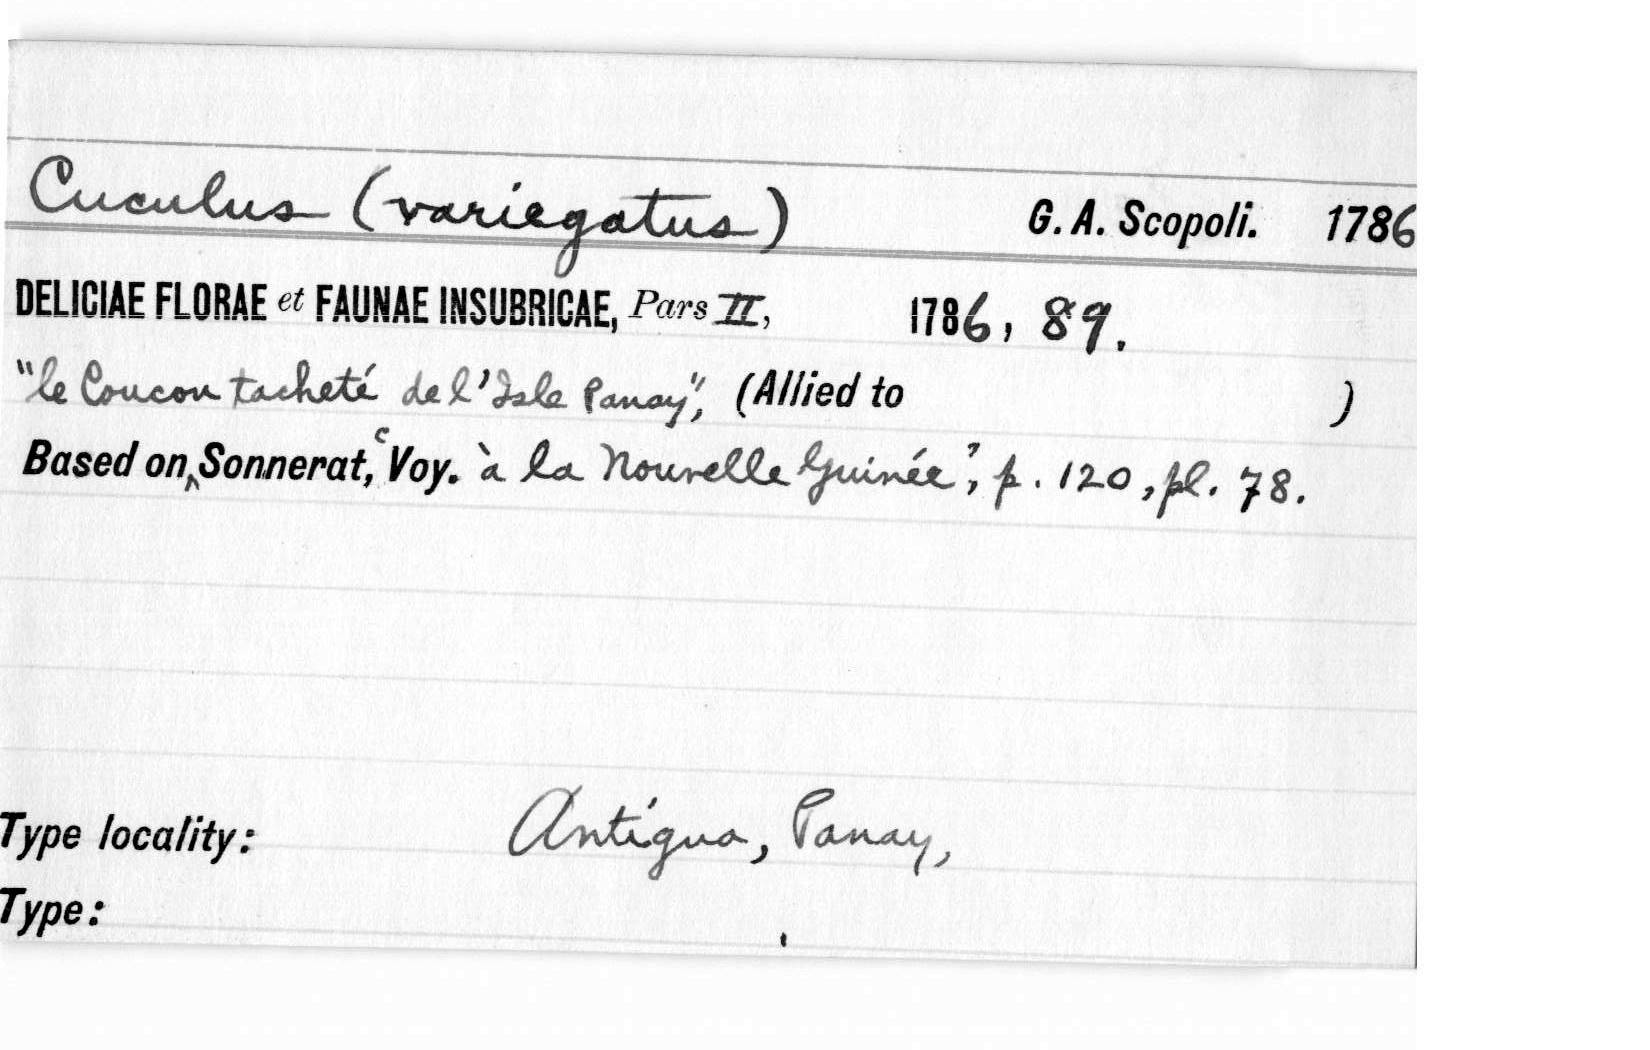 Cuculus (variegatus) G. A. Scopoli. 1786
DELICIAE FLORAE et FAUNAE INSUBRICAE, Pars II, 1786, 89.
"le Coucou tacheté de l'Isle Panay", (Allied to )
Based on ^ Sonnerat, ‘Voy. à la Nouvelle Guinée’, p. 120, pl. 78.
Type locality: Antigua, Panay,
Type: